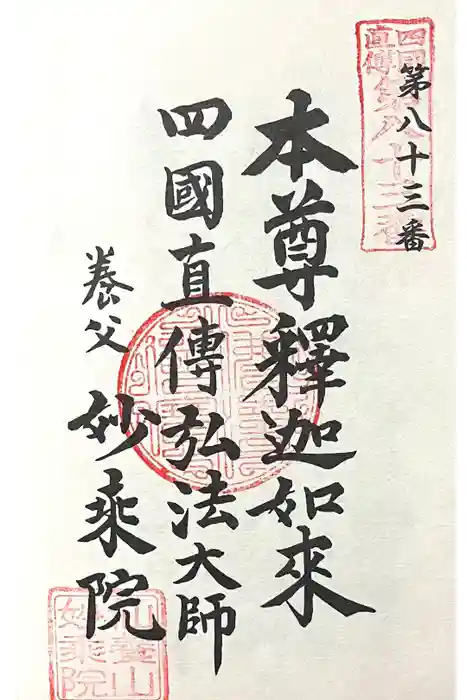 第八十三番
四國
直傳
第八十三番
本尊釋迦如來
四國直傳弘法大師
養父
妙乘院
妙乘院